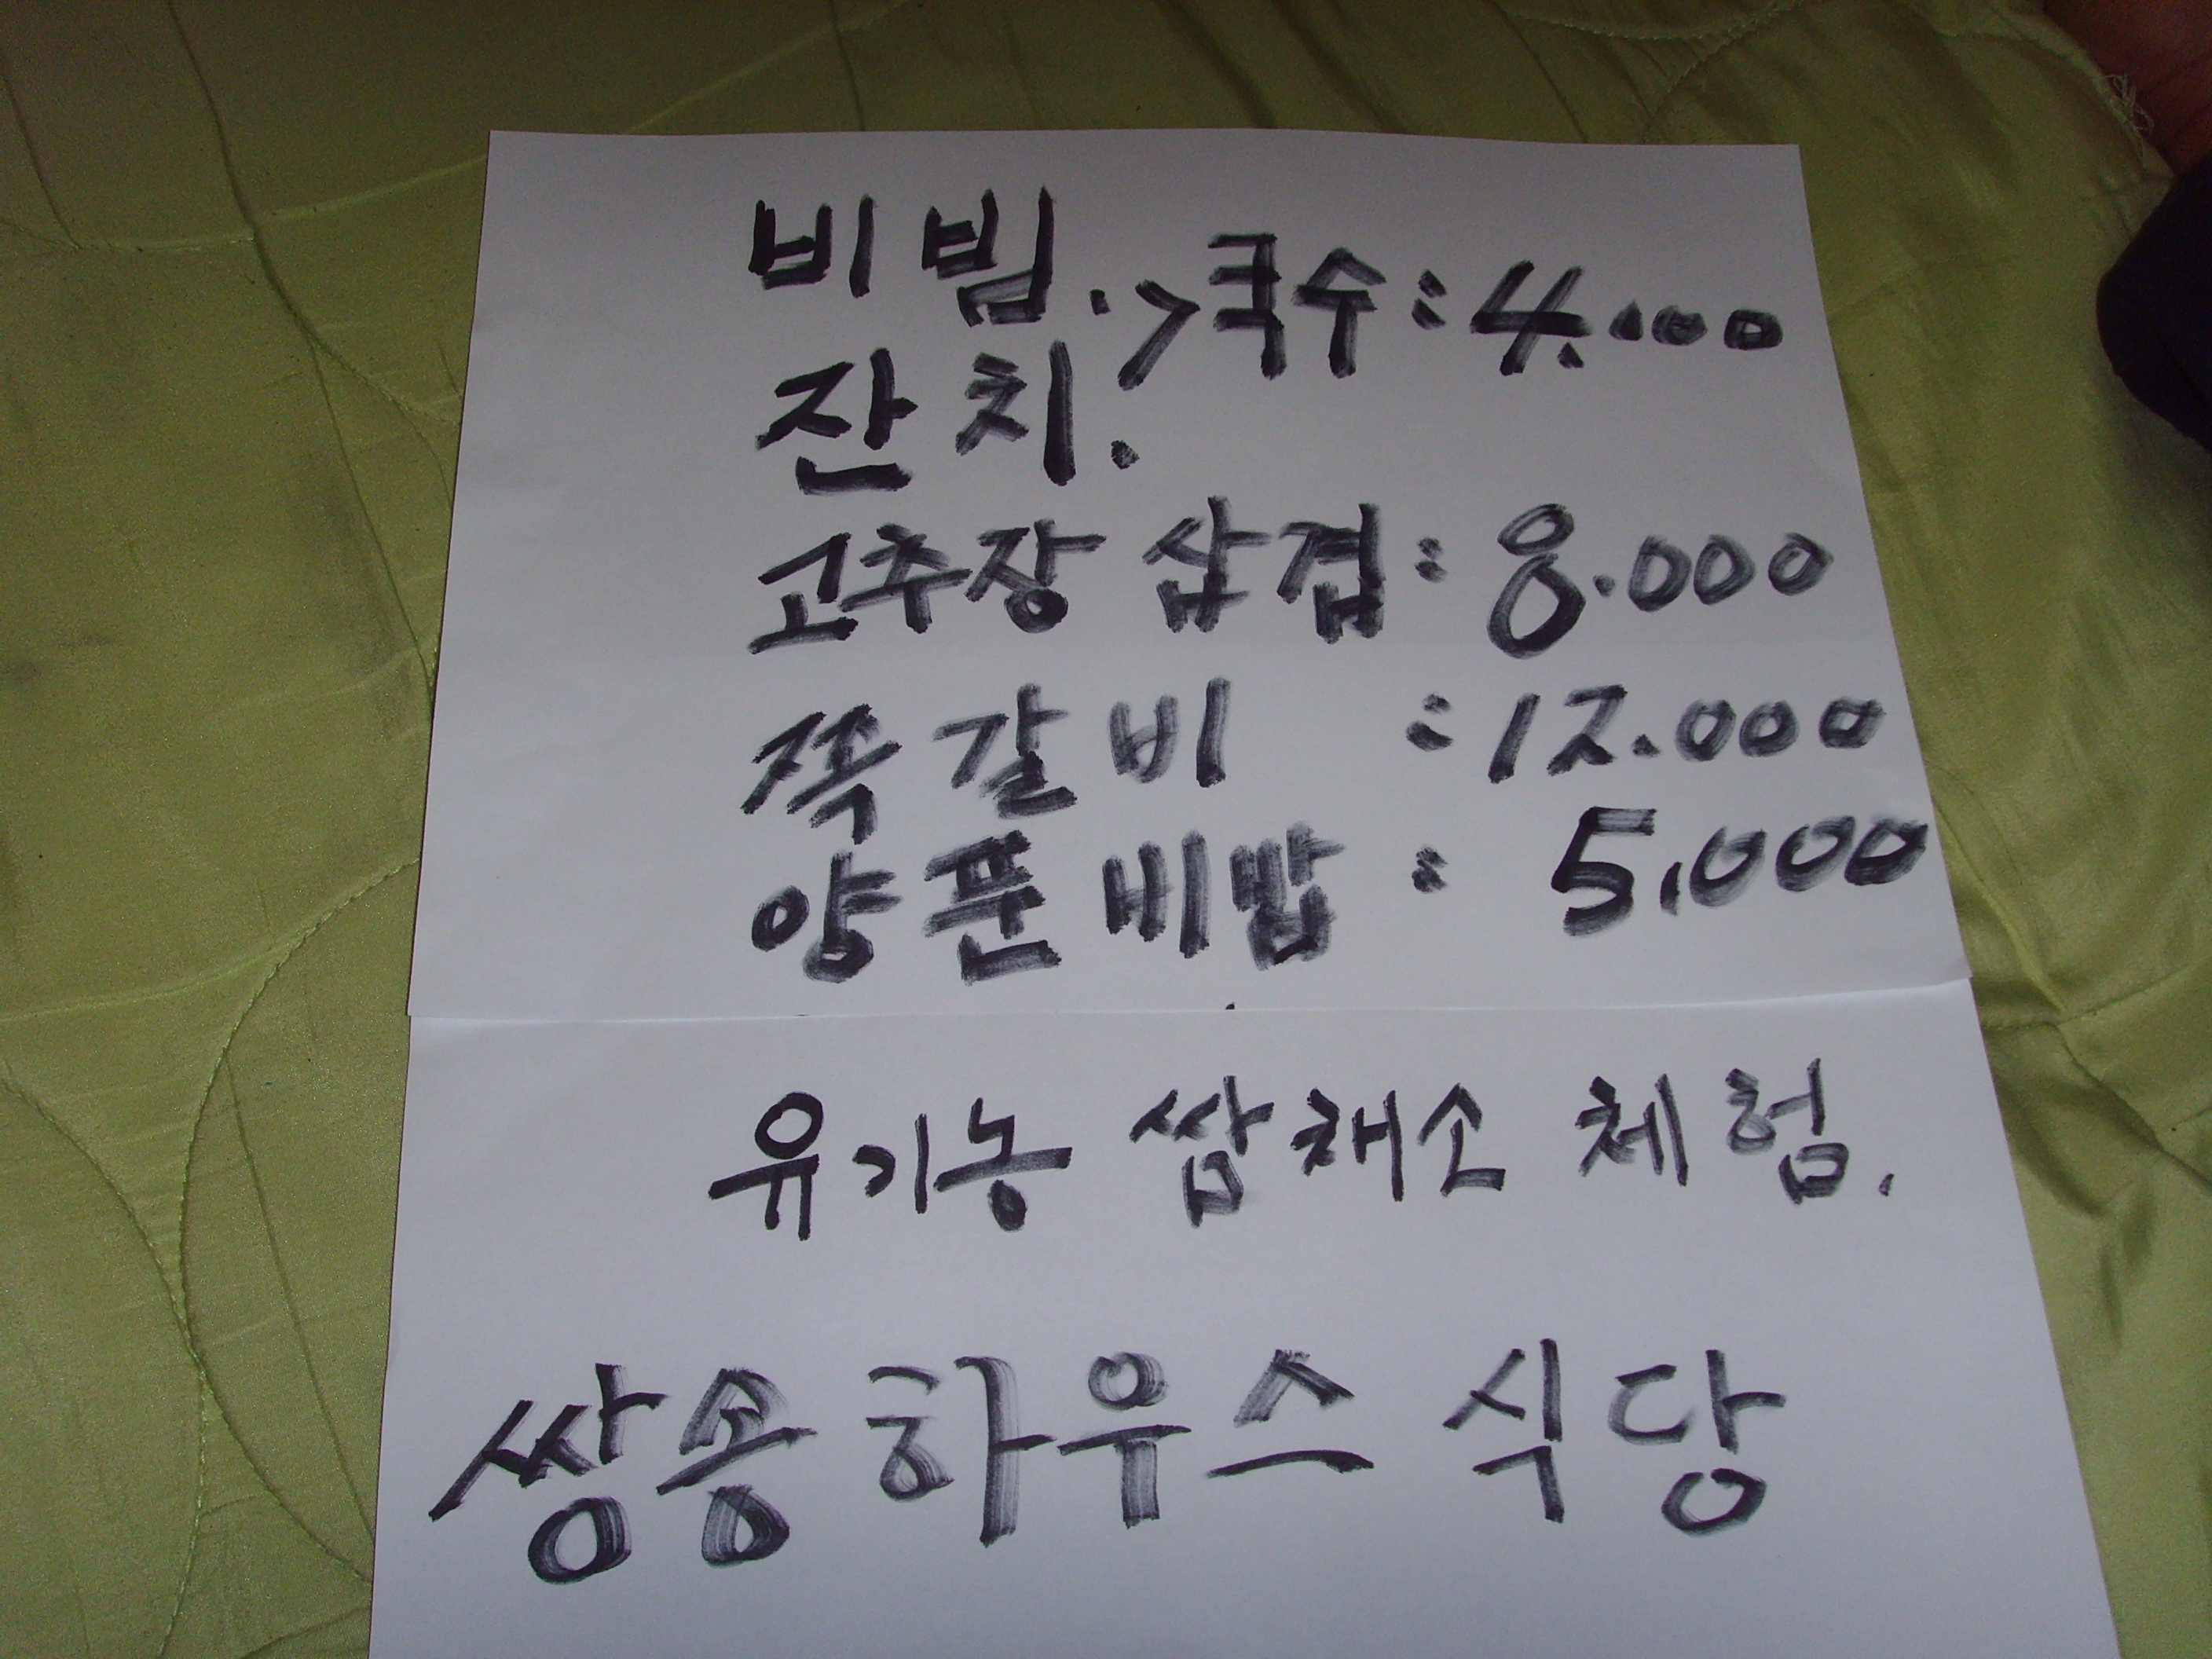 비빔.>국수:4.000
잔치.
고추장 삽겹:8.000
쪽갈비 :12.000
양푼비빱: 5,000
유기농 쌈채소 체험.
쌍송하우스 식당